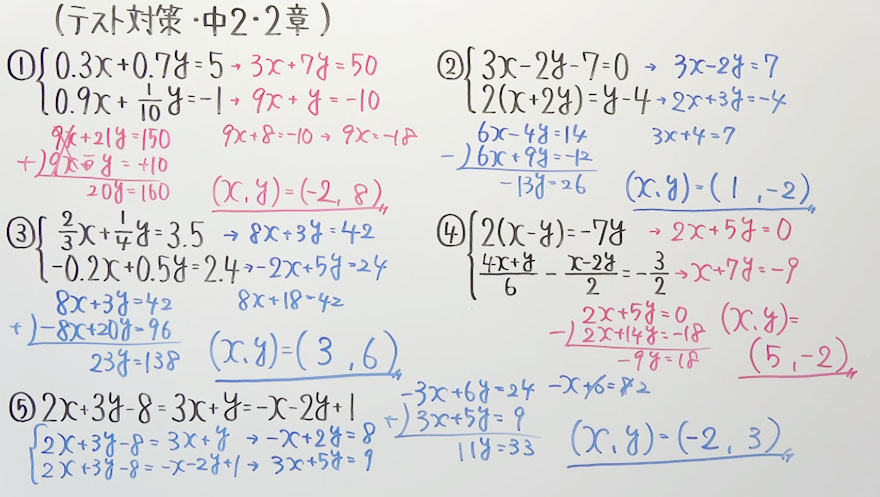 (テスト対策・中2・2章)
① { 0.3x+0.7y=5 → 3x+7y=50
0.9x+1/10y=-1 → 9x+y=-10
9x+21y=150 9x+8=-10 → 9x=-18
+) 9x-y=+10
20y=160 (x,y)=(-2,8)
② { 3x-2y-7=0 → 3x-2y=7
2(x+2y)=y-4 → 2x+3y=-4
6x-4y=14 3x+4=7
-) 6x+9y=-12
-13y=26 (x,y)=(1,-2)
③ { 2/3x+1/4y=3.5 → 8x+3y=42
-0.2x+0.5y=2.4 → -2x+5y=24
8x+3y=42 8x+18=42
+) -8x+20y=96
23y=138 (x,y)=(3,6)
④ { 2(x-y)=-7y → 2x+5y=0
4x+y/6 - x-2y/2 = -3/2 → x+7y=-9
2x+5y=0 (x,y)=
-) 2x+14y=-18
-9y=18 (5,-2)
⑤ 2x+3y-8=3x+y=-x-2y+1
{ 2x+3y-8=3x+y → -x+2y=8
2x+3y-8=-x-2y+1 → 3x+5y=9
-3x+6y=24 -x+6=8
+) 3x+5y=9
11y=33 (x,y)=(-2,3)